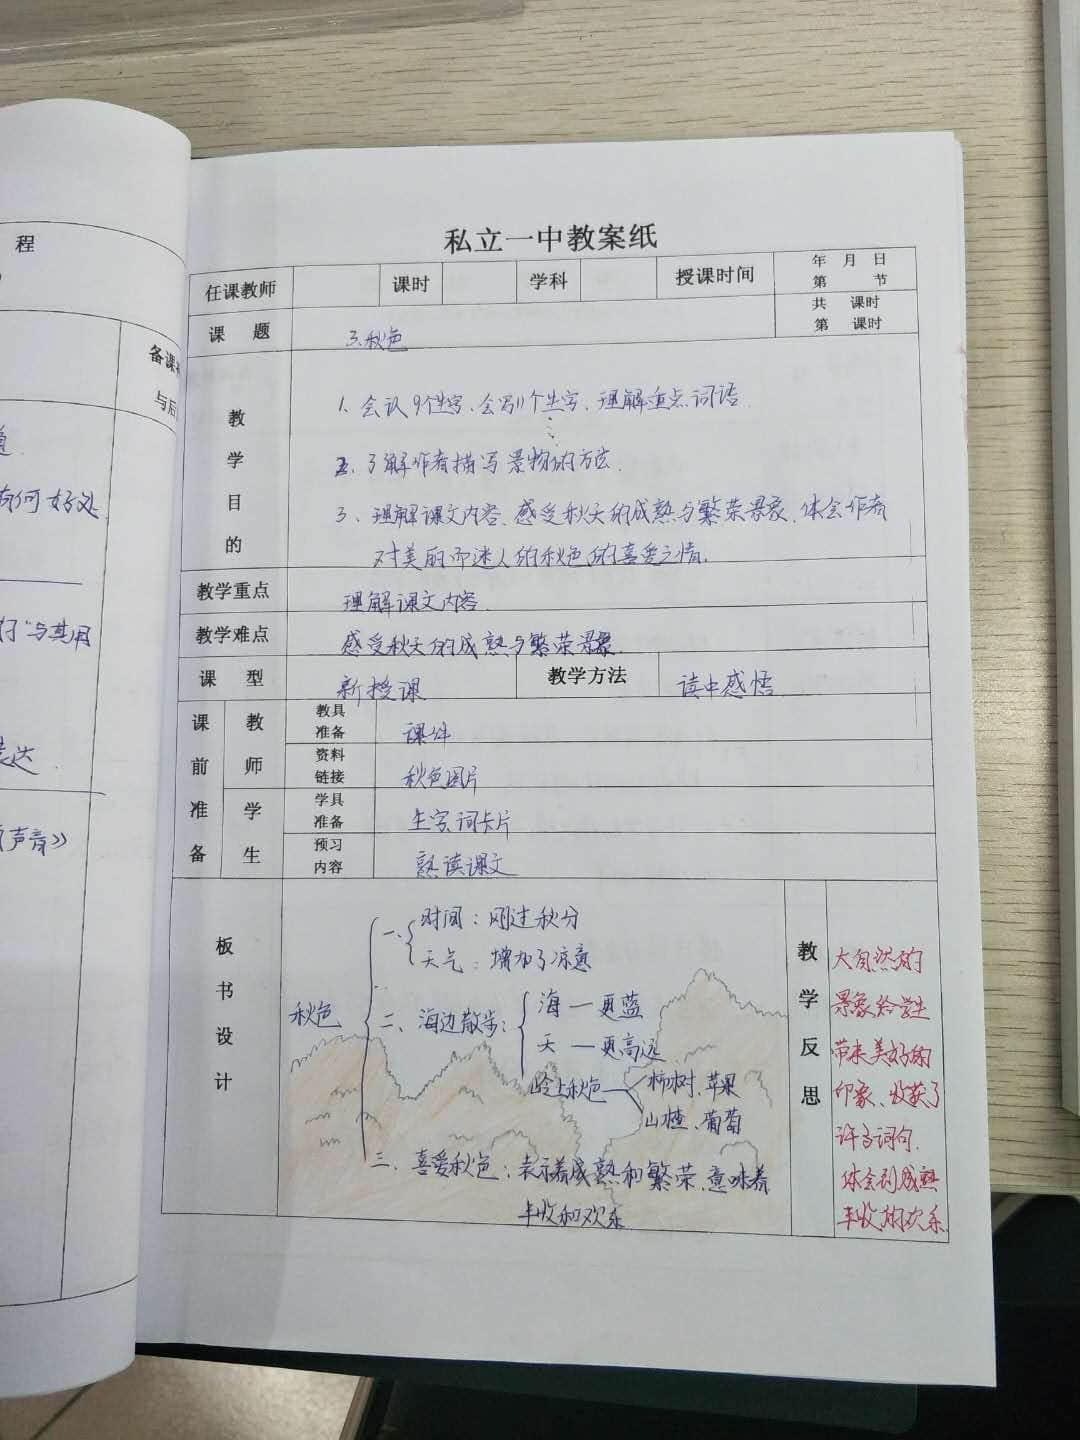 程
备课
与后
有何好处
行"与其用
表达
声音》
私立一中教案纸
任课教师 课时 学科 授课时间 年 月 日
第 节
课 题 3.秋色 共 课时
第 课时
教学目的
1. 会认9个生字、会写11个生字、理解重点词语.
2. 了解作者描写景物的方法.
3. 理解课文内容、感受秋天的成熟与繁荣景象、体会作者
对美丽而迷人的秋色的喜爱之情.
教学重点 理解课文内容.
教学难点 感受秋天的成熟与繁荣景象.
课 型 新授课 教学方法 读中感悟
课前准备
教师
教具准备 课件
资料链接 秋色图片
学生
学具准备 生字词卡片
预习内容 熟读课文
板书设计
秋色
一、时间:刚过秋分
天气:增加了凉意
二、海边散步:海—更蓝
天—更高远
岭上秋色—柿树、苹果
山楂、葡萄
三、喜爱秋色:表示着成熟和繁荣、意味着
丰收和欢乐
教学反思
大自然的
景象给学生
带来美好的
印象、收获了
许多词句.
体会到成熟
丰收的欢乐.